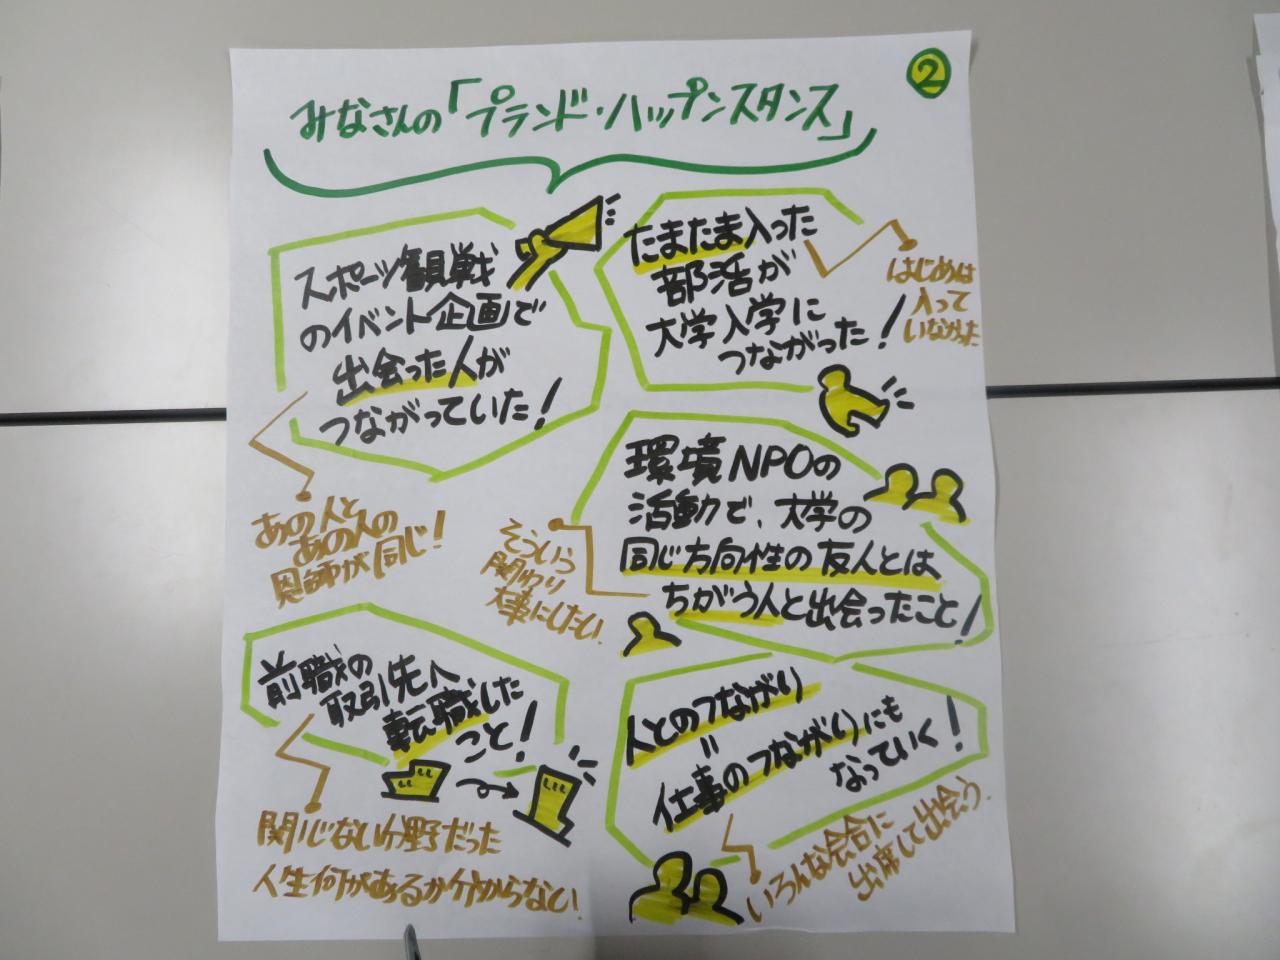 ②
みなさんの「プランド・ハップンスタンス」
スポーツ観戦
のイベント企画で
出会った人が
つながっていた！
あの人と
あの人の
恩師が同じ！
たまたま入った
部活が
大学入学に
つながった！
はじめは
入って
いなかった
環境NPOの
活動で、大学の
同じ方向性の友人とは
ちがう人と出会ったこと！
そういう
関わり
大事にしたい
前職の
取引先へ
転職した
こと！
関じない分野だった
人生何があるか分からない！
人とのつながり
〃
仕事のつながりにも
なっていく！
いろんな会合に
出席して出会う．